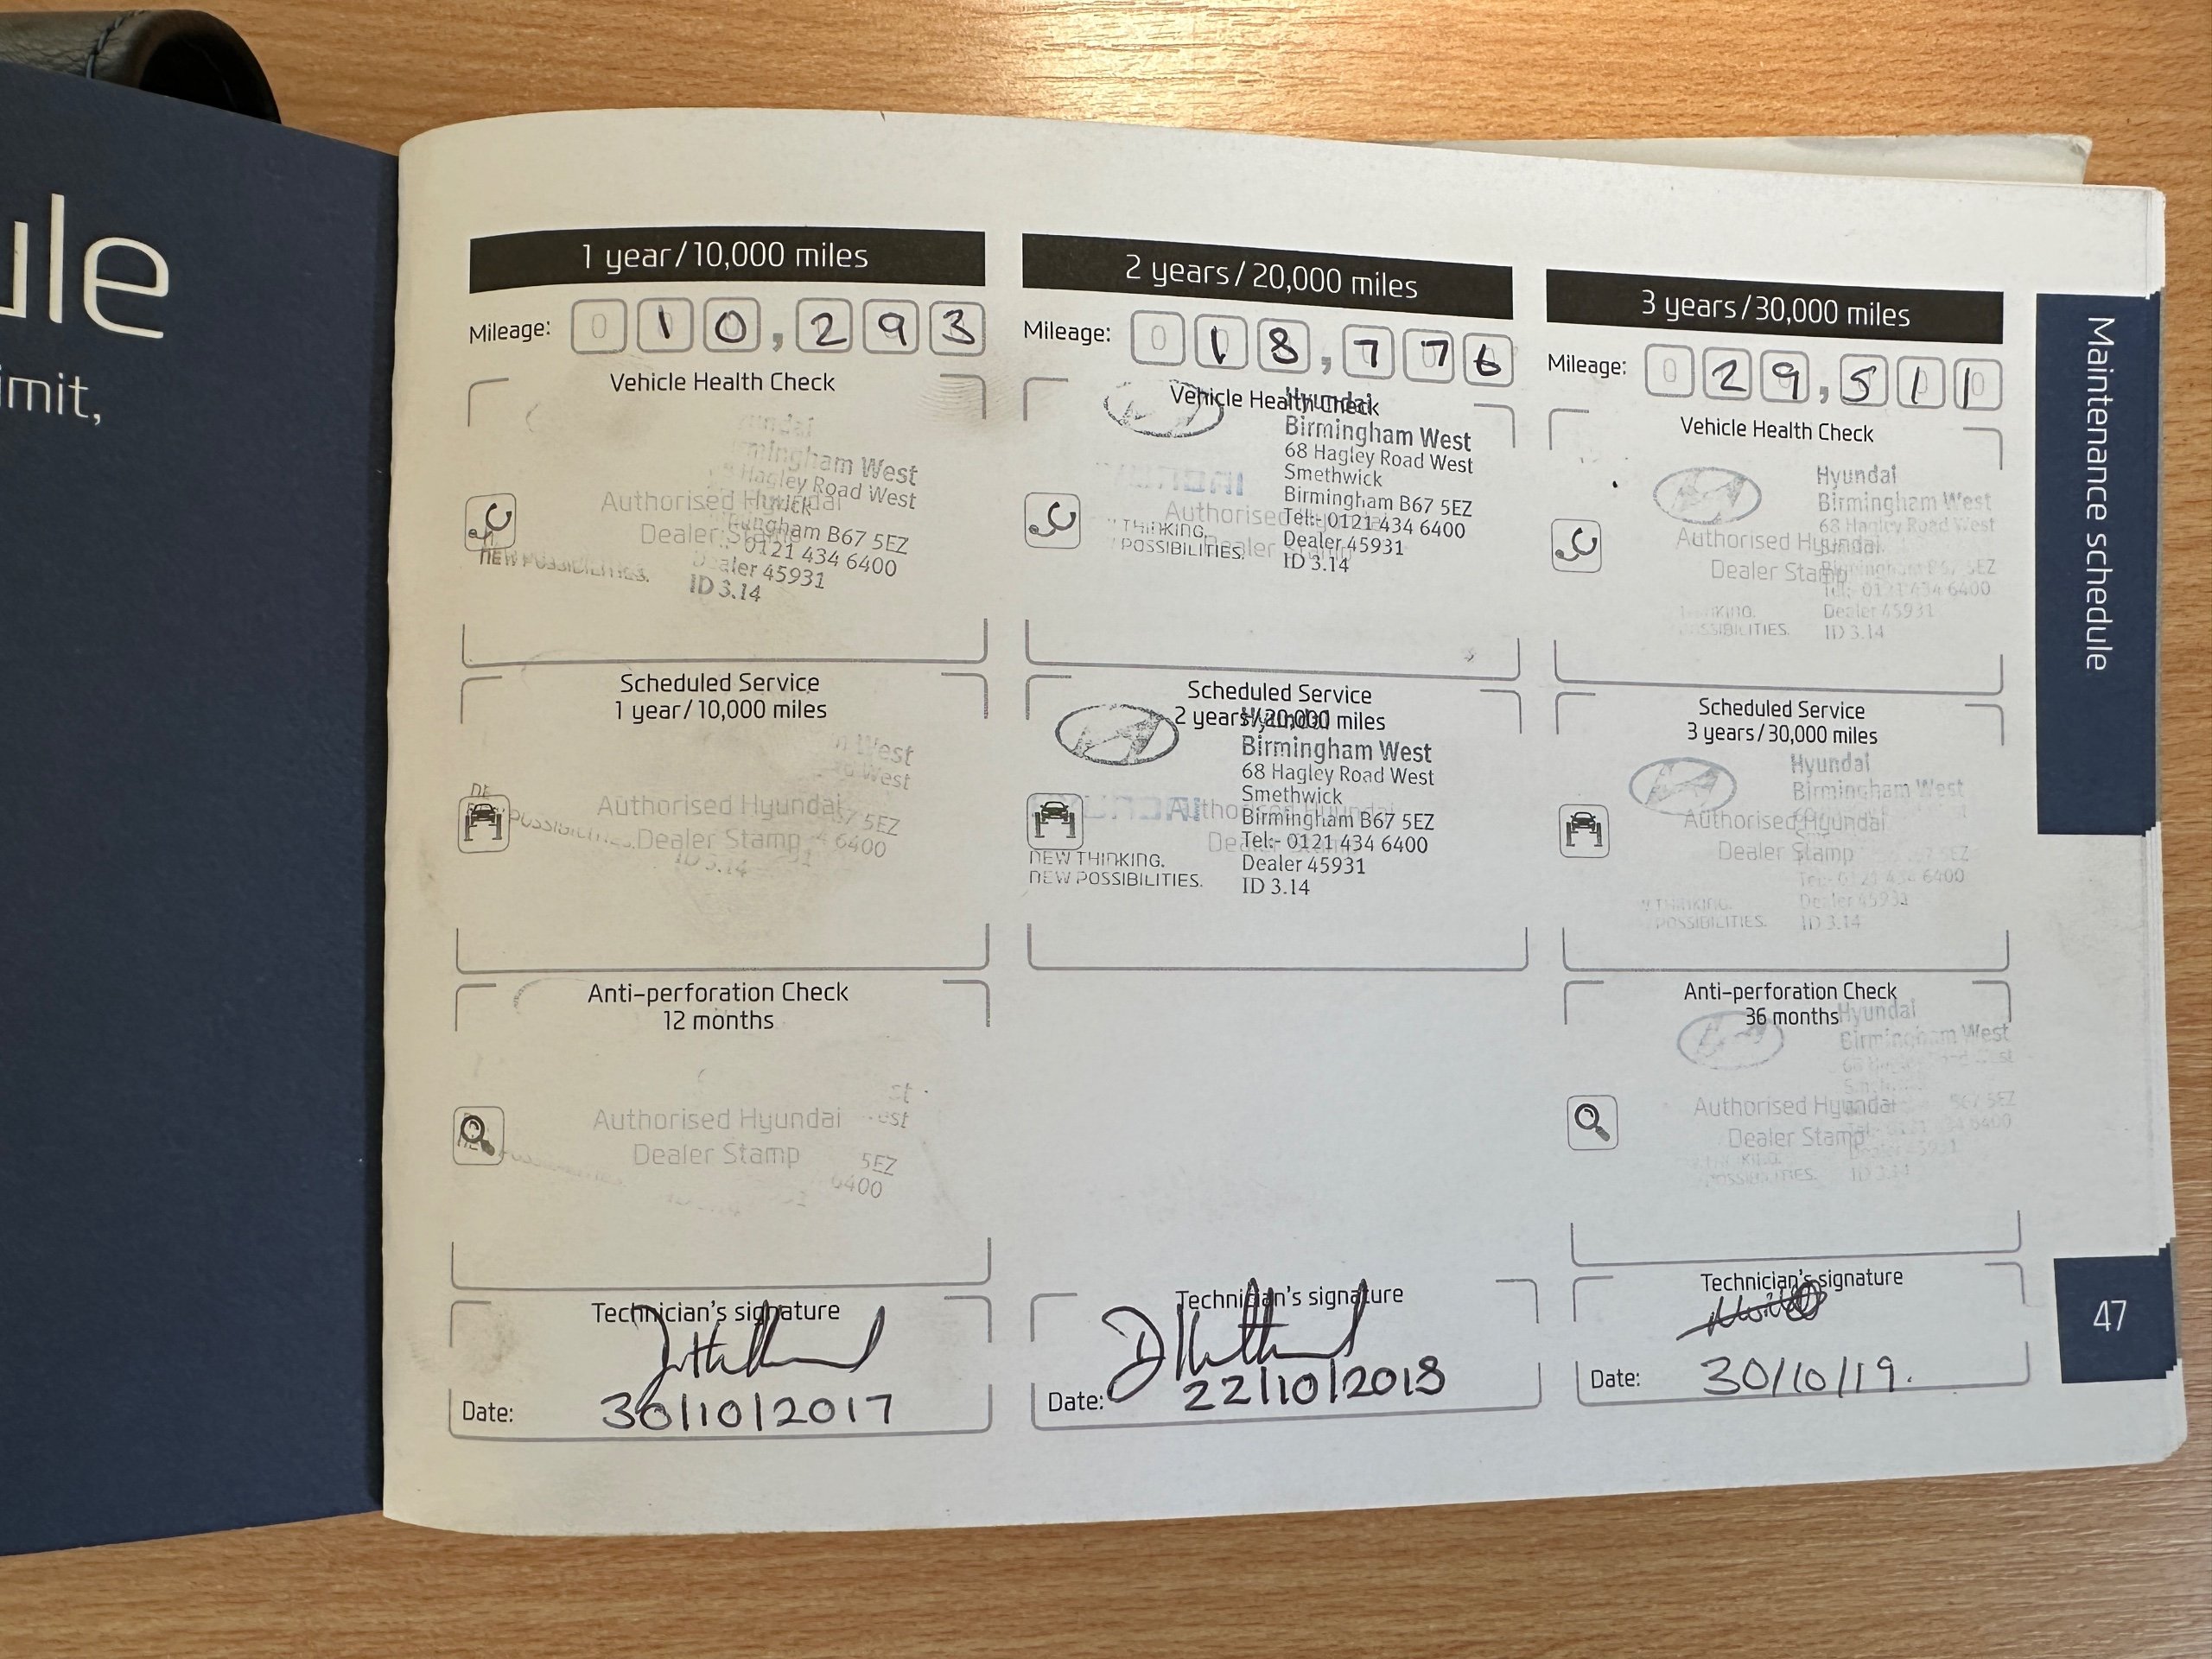 ule
imit,
1 year/10,000 miles
Mileage: 010,293
Vehicle Health Check
Authorised Hyundai
Dealer Stamp
mingham West
Hagley Road West
wick
ingham B67 5EZ
0121 434 6400
Dealer 45931
ID 3.14
NEW POSSIBILITIES.
Scheduled Service
1 year/10,000 miles
Authorised Hyundai
Dealer Stamp
West
West
5EZ
6400
ID 3.14
Anti-perforation Check
12 months
Authorised Hyundai
Dealer Stamp
5EZ
6400
Technician's signature
Date: 30/10/2017
2 years/20,000 miles
Mileage: 018,776
Vehicle Health Check
Hyundai
Birmingham West
68 Hagley Road West
Smethwick
Birmingham B67 5EZ
Tel:- 0121 434 6400
Dealer 45931
ID 3.14
Authorised Hyundai
Dealer Stamp
THINKING.
POSSIBILITIES.
Scheduled Service
2 years/20,000 miles
Hyundai
Birmingham West
68 Hagley Road West
Smethwick
Birmingham B67 5EZ
Tel:- 0121 434 6400
Dealer 45931
ID 3.14
Authorised Hyundai
Dealer Stamp
NEW THINKING.
NEW POSSIBILITIES.
Technician's signature
Date: 22/10/2018
3 years/30,000 miles
Mileage: 029,511
Vehicle Health Check
Hyundai
Birmingham West
68 Hagley Road West
Birmingham B67 5EZ
Tel:- 0121 434 6400
Dealer 45931
ID 3.14
Authorised Hyundai
Dealer Stamp
KING.
SSIBILITIES.
Scheduled Service
3 years/30,000 miles
Hyundai
Birmingham West
Authorised Hyundai
Dealer Stamp
Tel:- 0121 434 6400
Dealer 45931
ID 3.14
THINKING.
POSSIBILITIES.
Anti-perforation Check
36 months
Hyundai
Birmingham West
Authorised Hyundai
Dealer Stamp
ID 3.14
Technician's signature
Date: 30/10/19.
Maintenance schedule
47